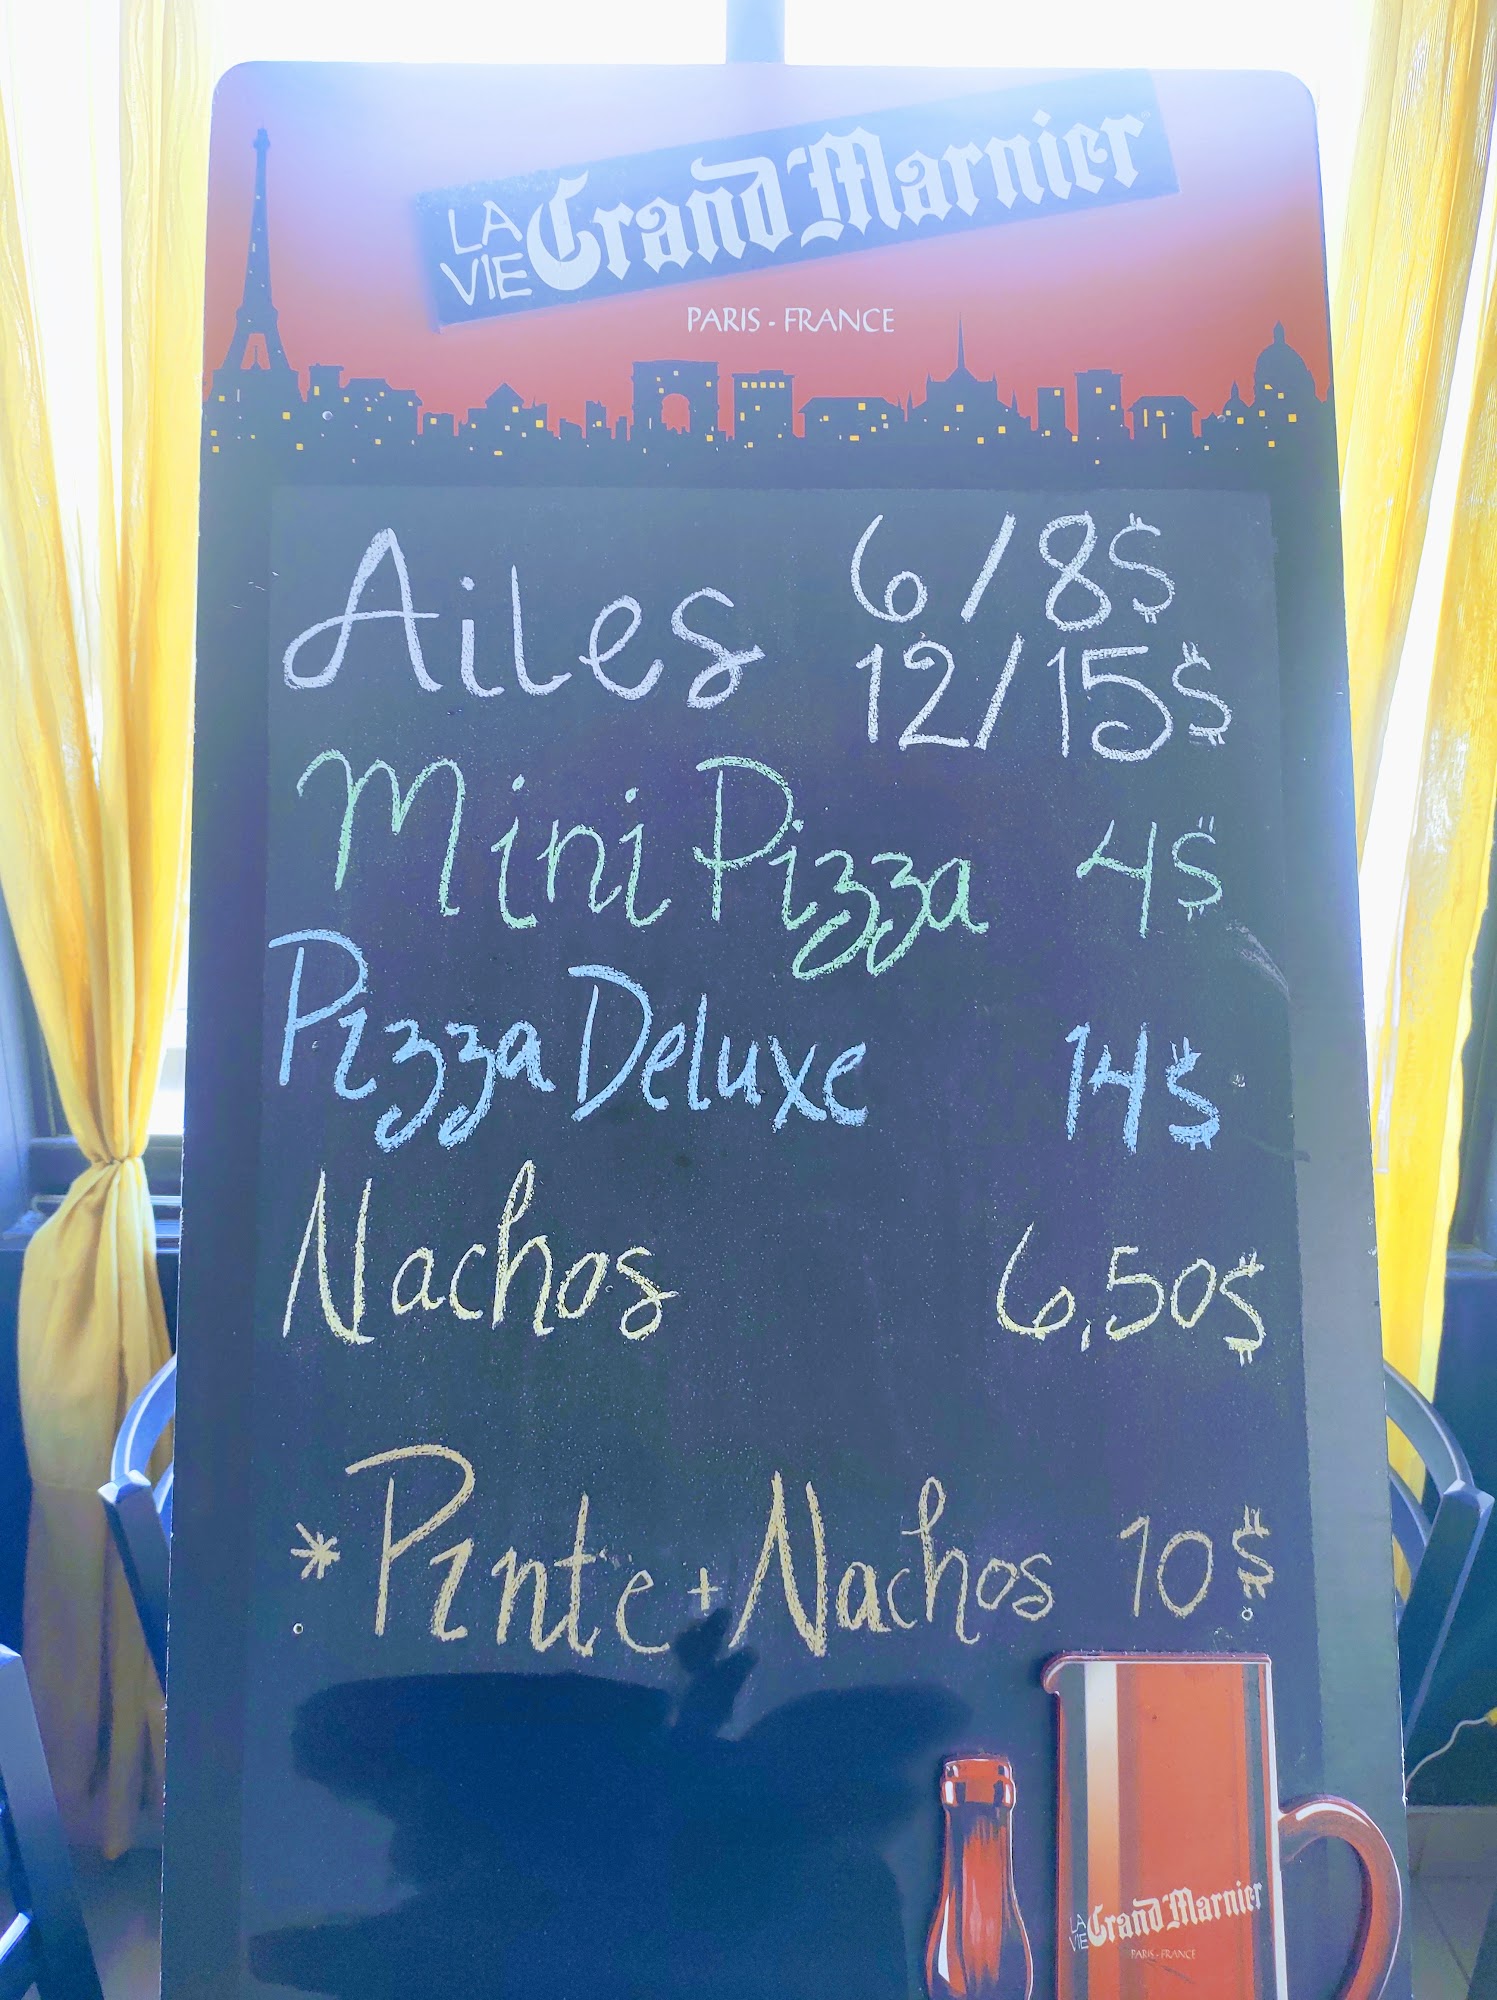 LA VIE Grand Marnier
PARIS - FRANCE
Ailes 6/8$
12/15$
Mini Pizza 4$
Pizza Deluxe 14$
Nachos 6,50$
* Pinte + Nachos 10$
LA VIE Grand Marnier
PARIS - FRANCE